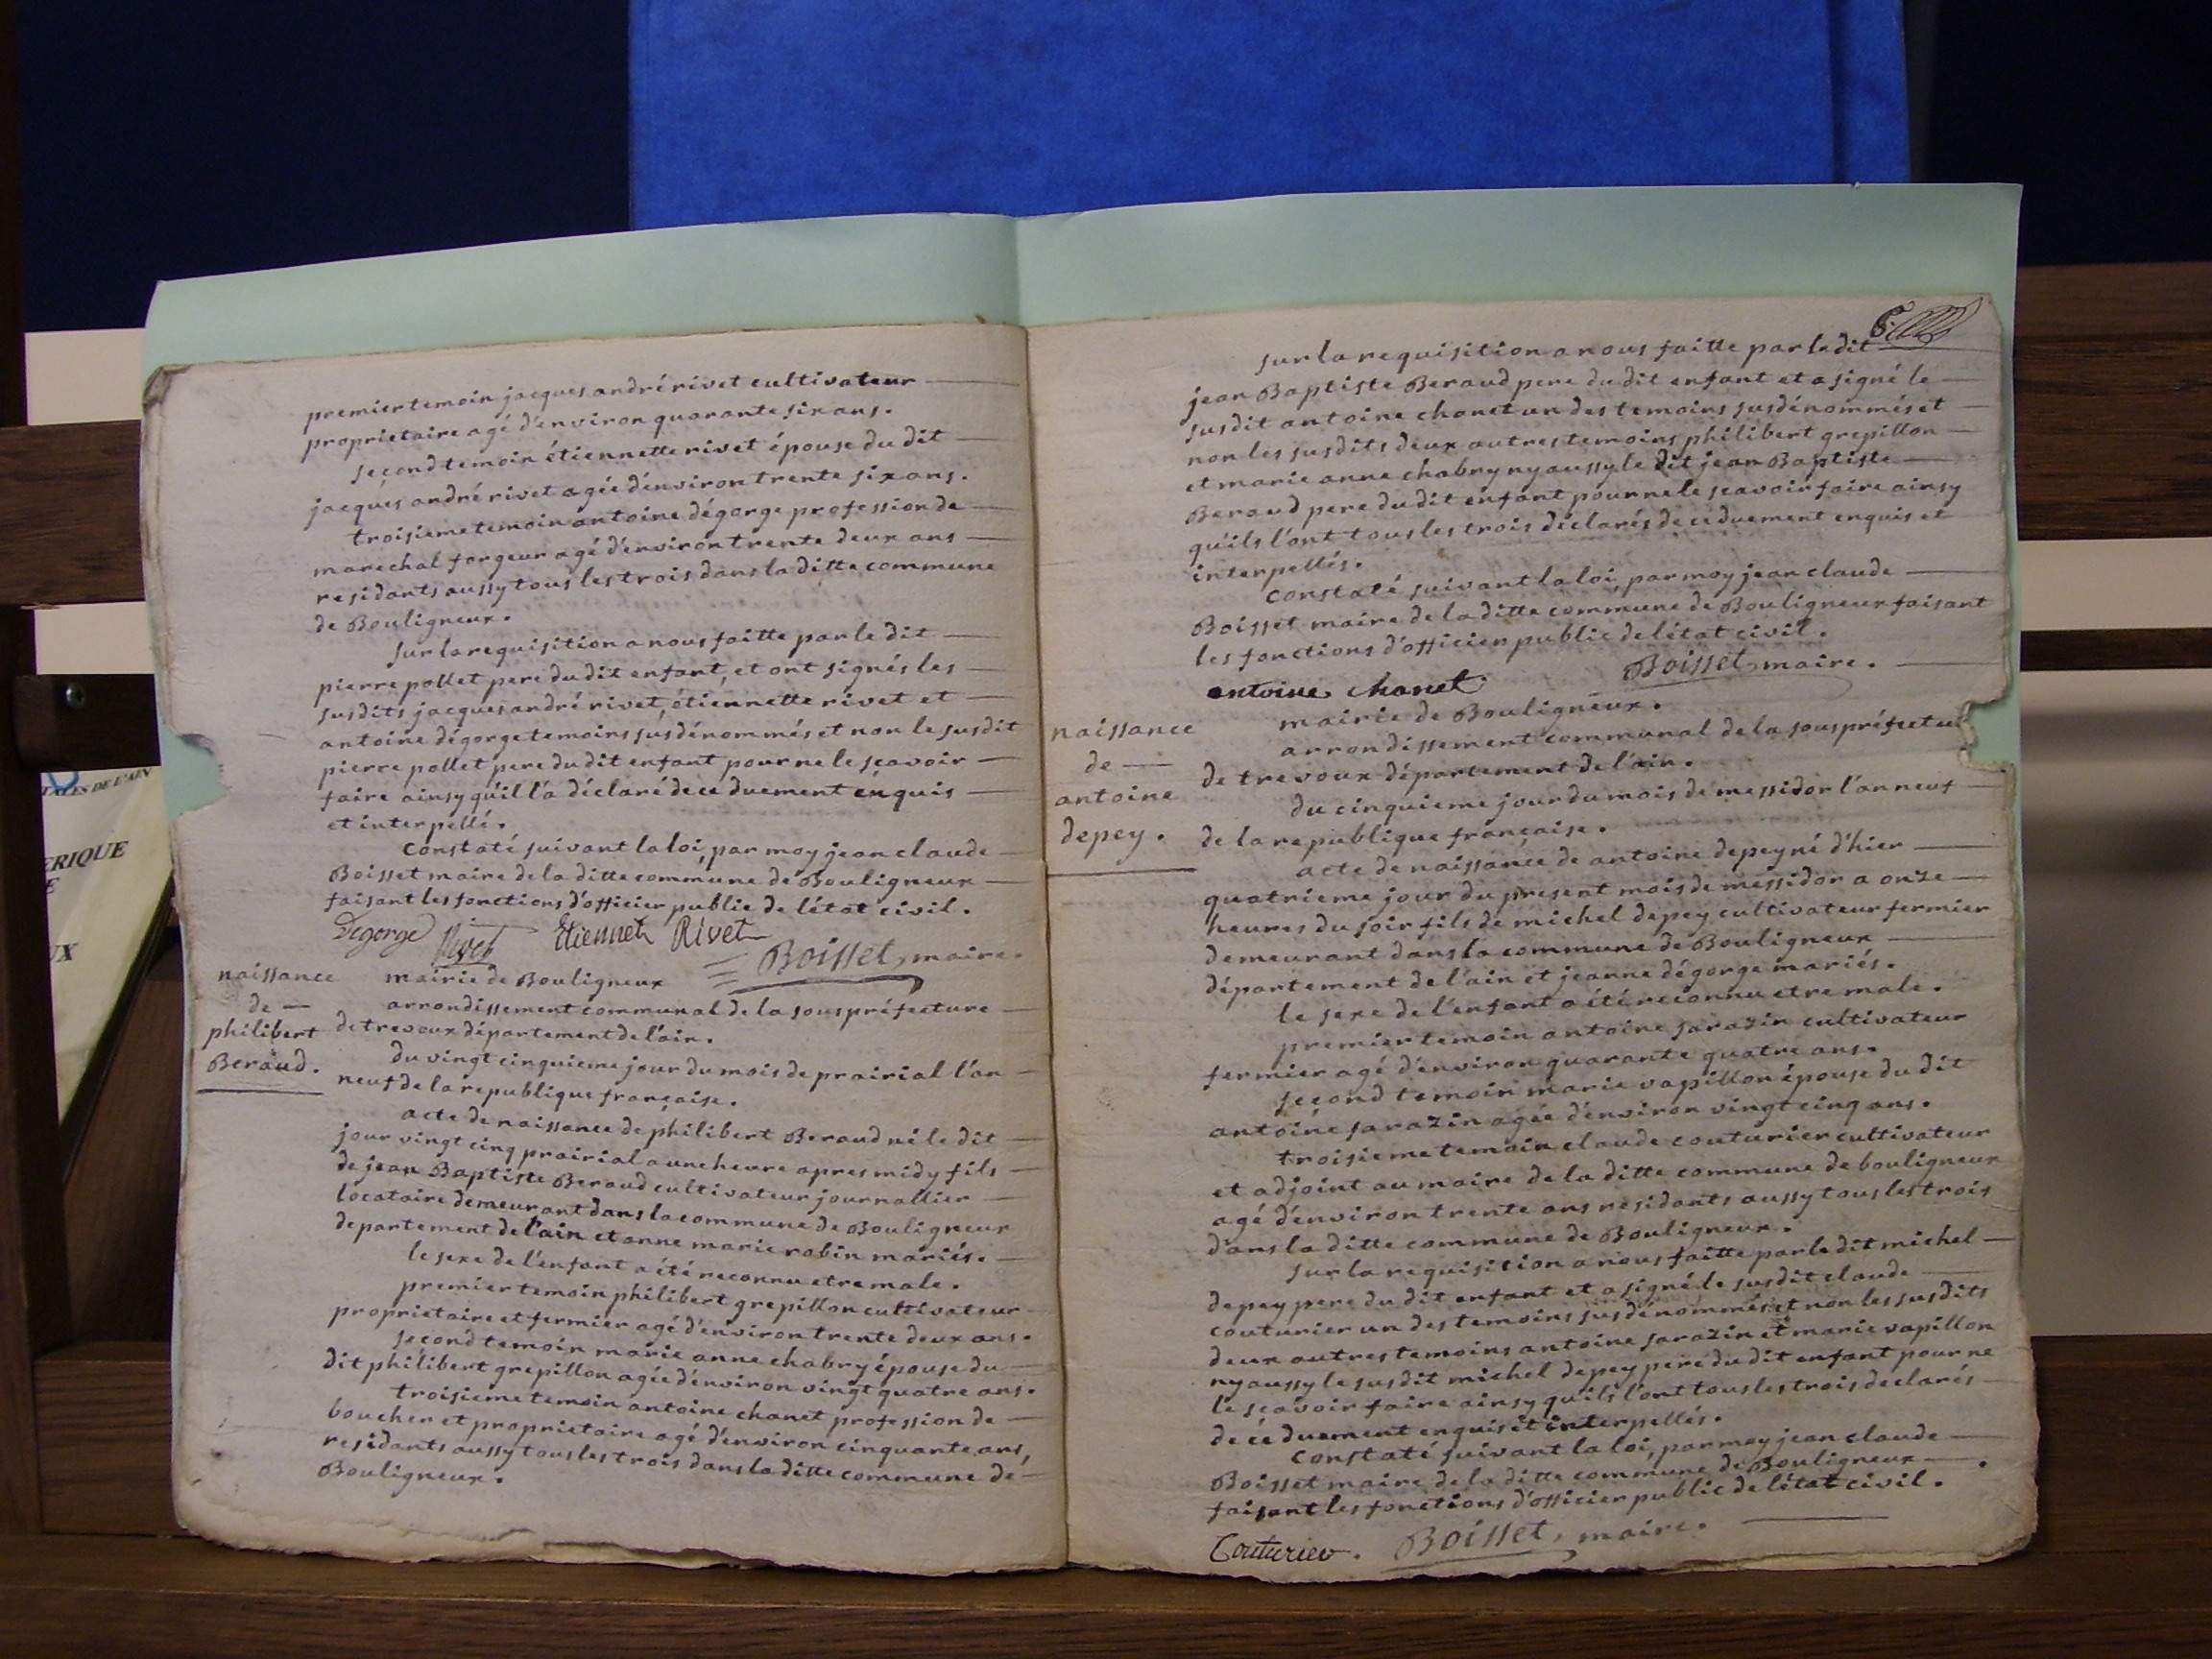 premier temoin jacques andré rivet cultivateur
proprietaire agé d'environ quarante six ans.
second temoin étiennette rivet épouse du dit
jacques andré rivet agée d'environ trente six ans.
troisieme temoin antoine dégorge profession de
marechal forgeur agé d'environ trente deux ans
residants aussy tous les trois dans la ditte commune
de Bouligneux.
sur la requisition a nous faitte par le dit
pierre pollet pere du dit enfant, et ont signés les
susdits jacques andré rivet, étiennette rivet et
antoine dégorge temoins susdénommés et non le susdit
pierre pollet pere du dit enfant pour ne le scavoir
faire ainsy qu'il l'a déclaré de ce duement enquis
et interpellé.
Constaté suivant la loi, par moy jean claude
Boisset maire de la ditte commune de Bouligneux
faisant les fonctions d'officier public de l'état civil.
Degorge Rivet Etiennet Rivet
Boisset, maire.
naissance
de
philibert
Beraud.
mairie de Bouligneux
arrondissement communal de la souspréfecture
de trevoux département de l'ain.
du vingt cinquieme jour du mois de prairial l'an
neuf de la republique française.
acte de naissance de philibert Beraud né le dit
jour vingt cinq prairial a une heure apres midy fils
de jean Baptiste Beraud cultivateur journallier
locataire demeurant dans la commune de Bouligneux
departement de l'ain et anne marie robin mariés.
le sexe de l'enfant a été reconnu etre male.
premier temoin philibert grepillon cultivateur
proprietaire et fermier agé d'environ trente deux ans.
second temoin marie anne chabry épouse du
dit philibert grepillon agée d'environ vingt quatre ans.
troisieme temoin antoine chanet profession de
boucher et proprietaire agé d'environ cinquante ans,
residants aussy tous les trois dans la ditte commune de
Bouligneux.
6
sur la requisition a nous faitte par le dit
jean Baptiste Beraud pere du dit enfant et a signé le
susdit antoine chanet un des temoins susdénommés et
non les susdits deux autres temoins philibert grepillon
et marie anne chabry ny aussy le dit jean Baptiste
Beraud pere du dit enfant pour ne le scavoir faire ainsy
qu'ils l'ont tous les trois déclarés de ce duement enquis et
interpellés.
Constaté suivant la loi, par moy jean claude
Boisset maire de la ditte commune de Bouligneux faisant
les fonctions d'officier public de l'état civil.
antoine chanet Boisset, maire.
naissance
de
antoine
depey.
mairie de Bouligneux.
arrondissement communal de la souspréfectu
de trevoux département de l'ain.
du cinquieme jour du mois de messidor l'an neuf
de la republique française.
acte de naissance de antoine depey né d'hier
quatrieme jour du present mois de messidor a onze
heures du soir fils de michel depey cultivateur fermier
demeurant dans la commune de Bouligneux
département de l'ain et jeanne dégorge mariés.
le sexe de l'enfant a été reconnu etre male.
premier temoin antoine sarazin cultivateur
fermier agé d'environ quarante quatre ans.
second temoin marie vapillon épouse du dit
antoine sarazin agée d'environ vingt cinq ans.
troisieme temoin claude couturier cultivateur
et adjoint au maire de la ditte commune de bouligneux
agé d'environ trente ans residants aussy tous les trois
dans la ditte commune de Bouligneux.
sur la requisition a nous faitte par le dit michel
depey pere du dit enfant et a signé le susdit claude
couturier un des temoins susdénommés et non les susdits
deux autres temoins antoine sarazin et marie vapillon
ny aussy le susdit michel depey pere du dit enfant pour ne
le scavoir faire ainsy qu'ils l'ont tous les trois declarés
de ce duement enquis et interpellés.
Constaté suivant la loi, par moy jean claude
Boisset maire de la ditte commune de Bouligneux
faisant les fonctions d'officier public de l'état civil.
Couturier. Boisset, maire.
DE L'AIN
ERIQUE
E
UX